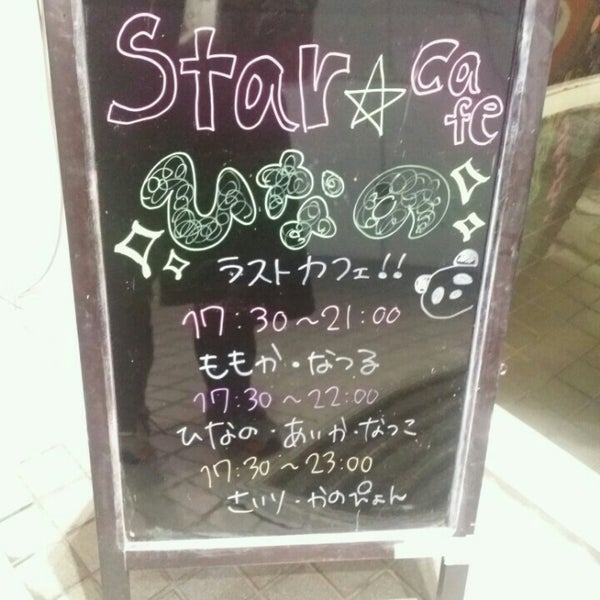 Star☆cafe
ひなの
ラストカフェ!!
17:30～21:00
ももか・なつる
17:30～22:00
ひなの・あいか・なつこ
17:30～23:00
さいり・かのぴょん